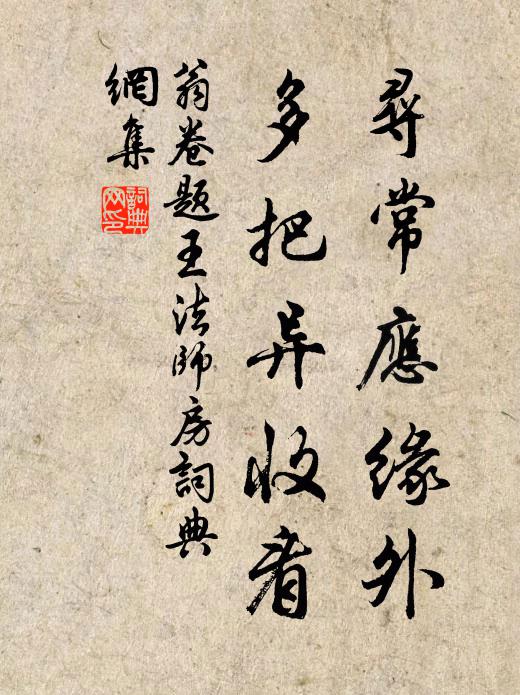 尋常應緣外
多把异收看
翁卷题王法師房詞典
網集
詞典
网印